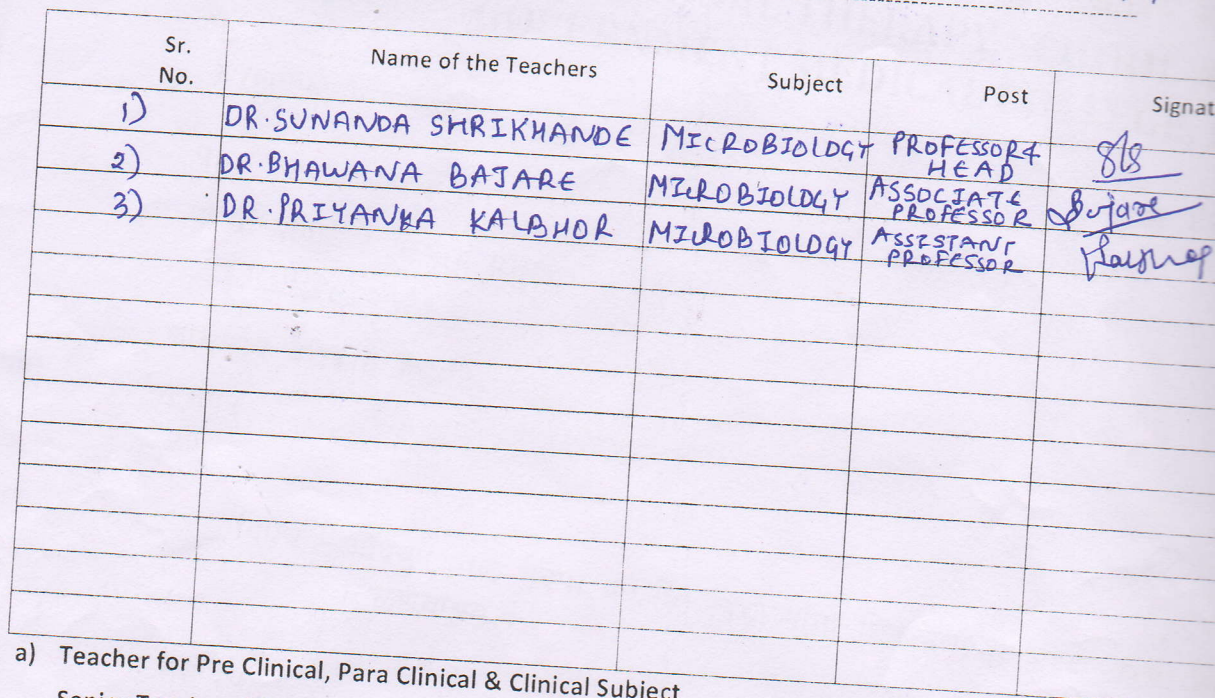 Sr. No. Name of the Teachers Subject Post Signat
1) DR. SUNANDA SHRIKHANDE MICROBIOLOGY PROFESSOR & HEAD
2) DR. BHAWANA BAJARE MICROBIOLOGY ASSOCIATE PROFESSOR Bajare
3) DR. PRIYANKA KALBHOR MICROBIOLOGY ASSISTANT PROFESSOR
a) Teacher for Pre Clinical, Para Clinical & Clinical Subject